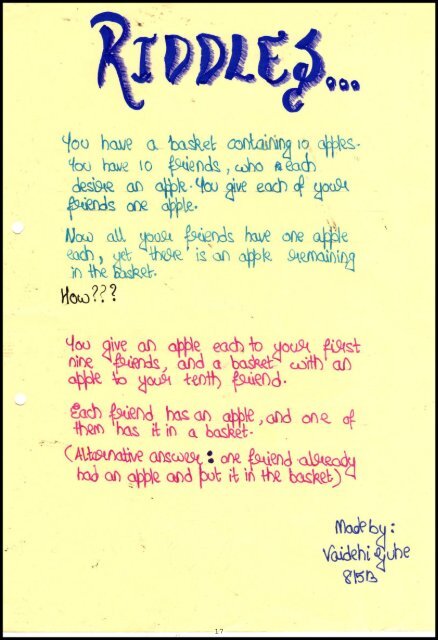 RIDDLES...
You have a basket containing 10 apples.
You have 10 friends, who each
desire an apple. You give each of your
friends one apple.
Now all your friends have one apple
each, yet there is an apple remaining
in the basket.
How???
You give an apple each to your first
nine friends, and a basket with an
apple to your tenth friend.
Each friend has an apple, and one of
them has it in a basket.
(Alternative answer: one friend already
had an apple and put it in the basket)
Made by:
Vaidehi
17